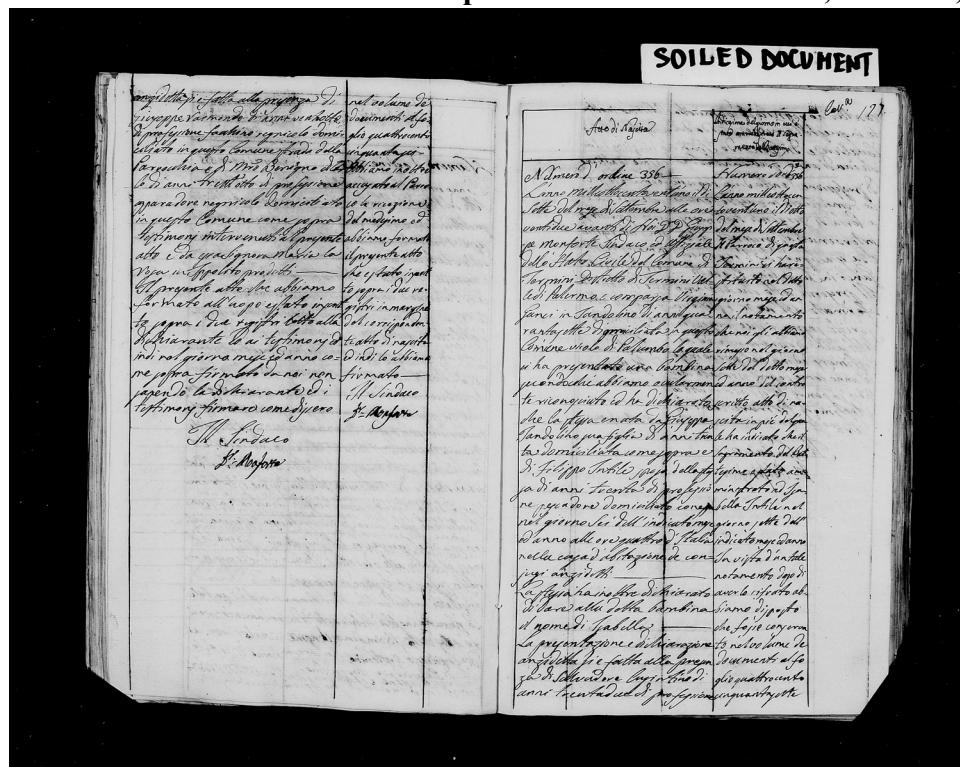 SOILED DOCUMENT
anzidetta si è fatta alla presenza di
Giuseppe Raimondo di anni
di professione regnicolo domi
ciliato in questo Comune strada della
Parocchia e di
di anni trentotto di professione
regnicolo domiciliato
in questo Comune come sopra
testimonj intervenuti al presente
atto e da essa Signora Maria la
Il presente atto che abbiamo
formato all'uopo è stato inscrit
to sopra i due registri letto alla
dichiarante ed ai testimonj ed
indi nel giorno mese ed anno co
me sopra firmato da noi non
sapendo la dichiarante ed i
testimonj firmare come dissero
Il Sindaco
nel volume de
documenti al fo
glio quattrocento
cinquanta
Abbiamo inoltre
accusato al Paro
co la ricezione
del medesimo ed
abbiamo formato
il presente atto
che è stato inscrit
to sopra i due re
gistri in margine
del corrisponden
te atto di nascita
ed indi lo abbiamo
firmato
Il Sindaco
177
Atto di Nascita
Numero d'ordine 356
L'anno mille ottocento ventuno il dì
sette del mese di Settembre alle ore
ventidue avanti di Noi D. D. Giusep
pe Monforte Sindaco ed Uffiziale
dello Stato Civile del Comune di
Termini Distretto di Termini Val
le di Palermo, è comparsa Virginia
Sanci in Sandolino di anni qua
rantasette domiciliata in questo
Comune vicolo di Palumbo la quale
ci ha presentato una bambina
secondoche abbiamo ocularmen
te riconosciuto ed ha dichiarato
che la stessa è nata da Giuseppa
Sandolino sua figlia di anni tren
ta domiciliata come sopra e
di Filippo Intile sposo della stes
sa di anni trenta di professio
ne pescadore domiciliato come sopra
nel giorno sei dell'indicato mese
ed anno alle ore quattro d'Italia
nella casa d'abitazione de con
jugi anzidetti
La stessa ha inoltre dichiarato
di dare alla detta bambina
il nome di Isabella
La presentazione e dichiarazione
anzidetta si è fatta alla presen
za di Salvadore di
anni trentadue di professione
Numero d'ordine 356
L'anno mille ottocen
to ventuno il dì otto
del mese di Settembre
Il Parroco di
Termini ci ha re
stituito nel detto
giorno mese ed an
no il notamento
che noi gli abbiamo
rimesso nel giorno
sette del detto mese
ed anno del contro
scritto atto di na
scita in piè del qua
le ha indicato che il
Sagramento del Bat
tesimo è stato am
ministrato ad Isa
bella Intile nel
giorno sette dell'
indicato mese ed anno
In vista d'un tale
notamento dopo di
averlo cifrato ab
biamo disposto
che fosse conserva
to nel volume de
documenti al fo
glio quattrocento
cinquantasette